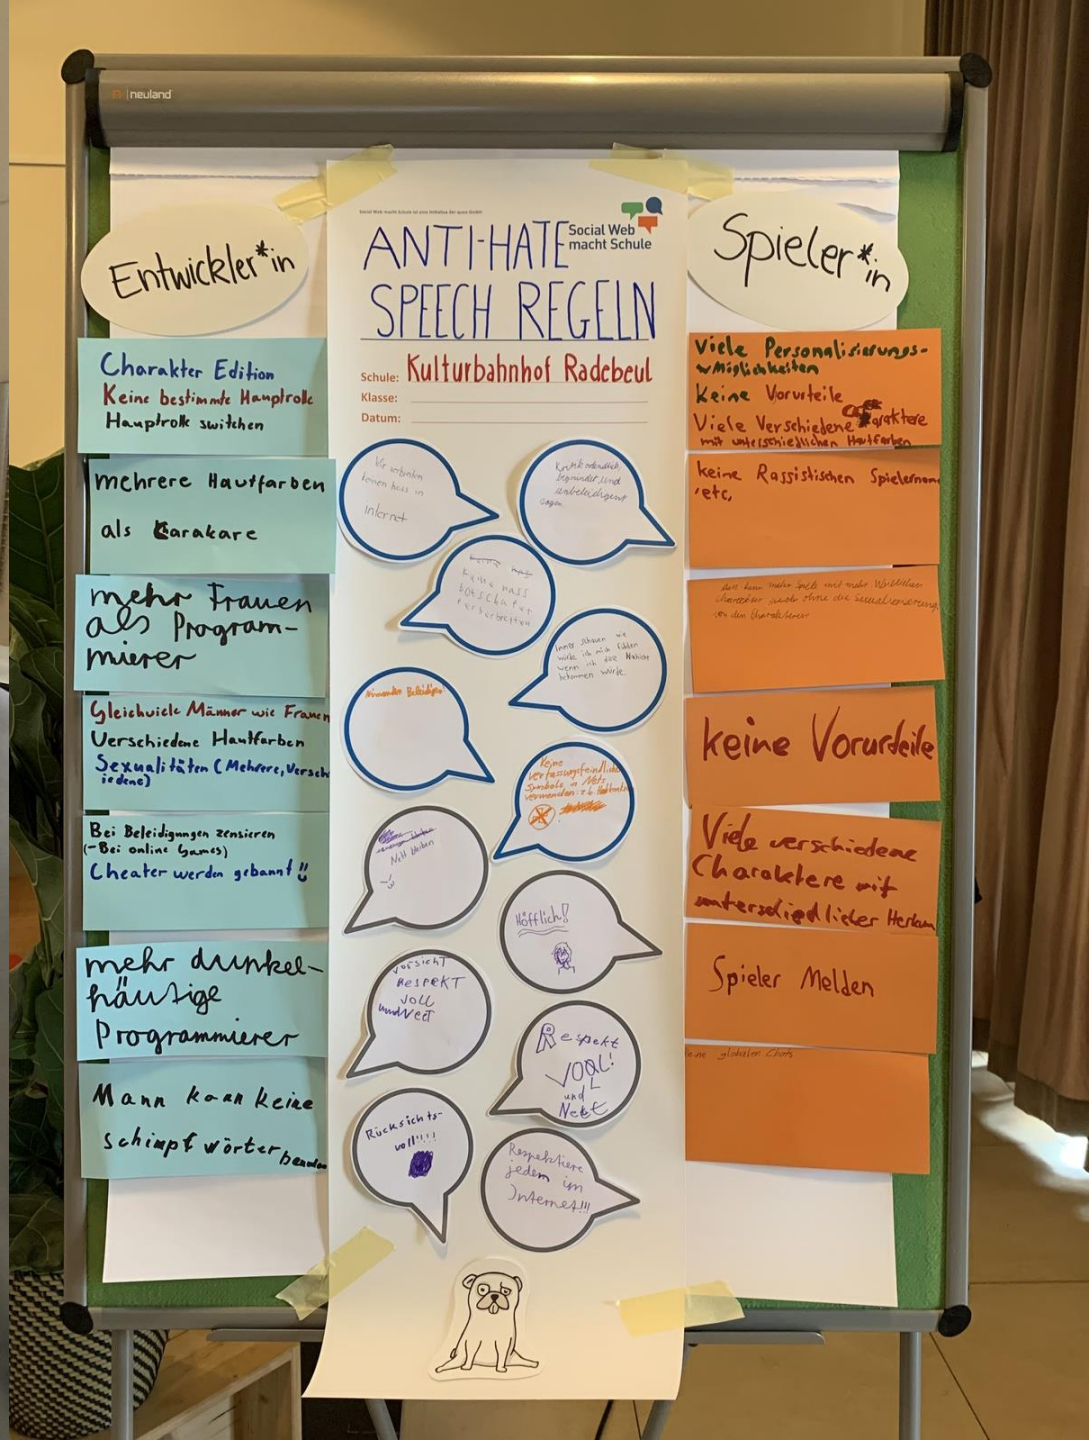 neuland
Entwickler*in
Charakter Edition
Keine bestimmte Hauptrolle
Hauptrolle switchen
mehrere Hautfarben
als Carakare
mehr Frauen
als Program-
mierer
Gleichviele Männer wie Frauen
Verschiedene Hautfarben
Sexualitäten (Mehrere, Versch
iedene)
Bei Beleidigungen zensieren
(-Bei online Games)
Cheater werden gebannt!!
mehr dunkel-
häutige
Programmierer
Mann kann keine
schimpf wörter
Social Web macht Schule ist eine Initiative der
Social Web
macht Schule
ANTI-HATE
SPEECH REGELN
Schule: Kulturbahnhof Radebeul
Klasse:
Datum:
Wir verbreiten
keinen hass in
internet
Kritik ordendlich,
begründet und
unbeleidigent
sagen
Keine hass
Keine hass
botschafter
verbreiten
Immer schauen wie
würde ich mich fühlen
wenn ich die Nachicht
bekommen würde
Niemanden Beleidigen
Keine
verfassungsfeindliche
Symbole in Netz
verwenden: z.b.
Nett bleiben
Höfflich!
vorsichT
RespekT
voll
und Nett
Respekt
voll!
und
Nett
Rücksichts-
voll!!!!
Respektiere
jedem im
Internet!!!
Spieler*in
Viele Personalisierungs-
möglichkeiten
Keine Vorurteile
Viele Verschiedene
mit unterschiedlichen Hautfarben
keine Rassistischen Spielernam
,etc,
mehr Spiele mit mehr Weiblichen
Charakter ohne die Sexualisierung
von den Charakteren
keine Vorurdeile
Viele verschiedene
Charaktere mit
unterschiedlicher Herkun
Spieler Melden
keine globalen Chats